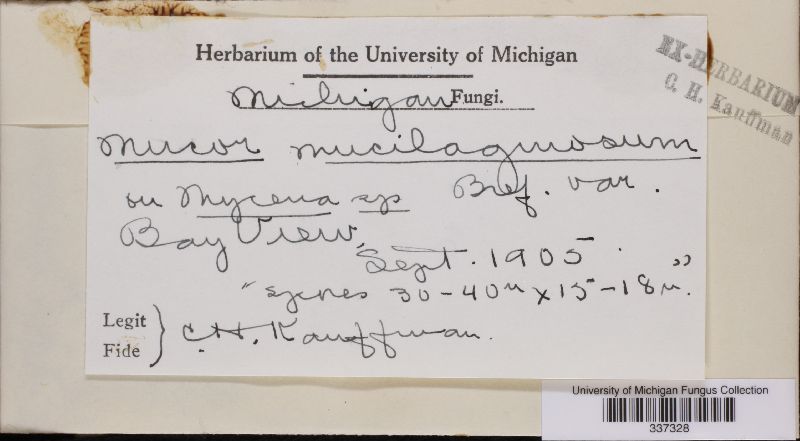 Herbarium of the University of Michigan
Michigan Fungi.
EX-HERBARIUM
C. H. Kauffman
Mucor mucilaginosum
on Mycena sp Bref. var.
Bay View,
Sept. 1905.
"spores 30-40µ x 15-18µ."
Legit
Fide
C.H. Kauffman.
University of Michigan Fungus Collection
337328